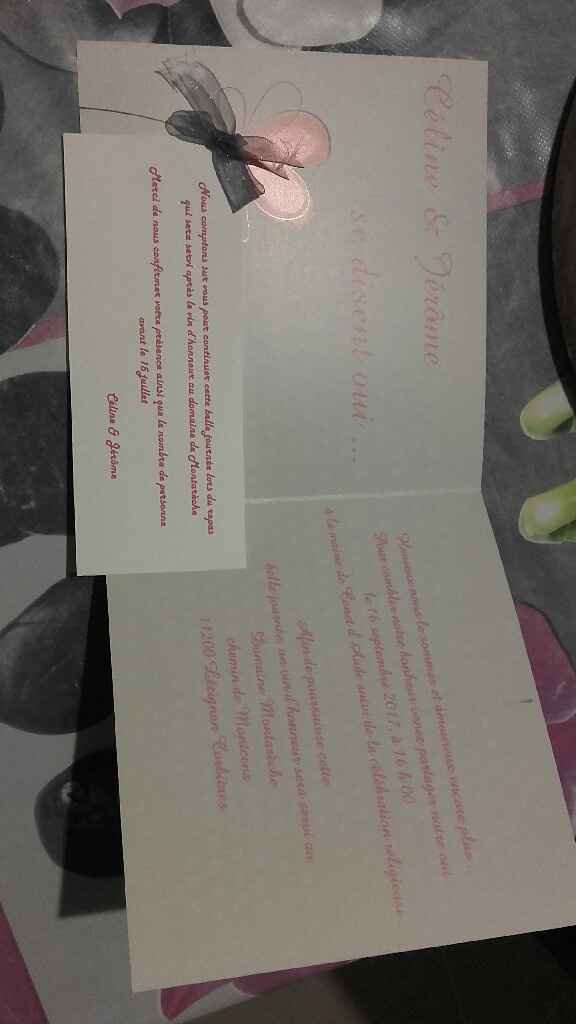 Céline & Jérôme
se disent oui ...
Nous comptons sur vous pour continuer cette belle journée lors du repas
qui sera servi après le vin d'honneur au domaine de Montarèche
Merci de nous confirmer votre présence ainsi que le nombre de personne
avant le 15 juillet
Céline & Jérôme
Heureux nous le sommes et amoureux encore plus ...
Pour combler notre bonheur venez partager notre oui
le 16 septembre 2017, à 16 h 00
à la mairie de d'Aude suivi de la célébration religieuse
Afin de poursuivre cette
belle journée, un vin d'honneur sera servi au
Domaine Montarèche
chemin de Montcens
11200 Lézignan Corbières